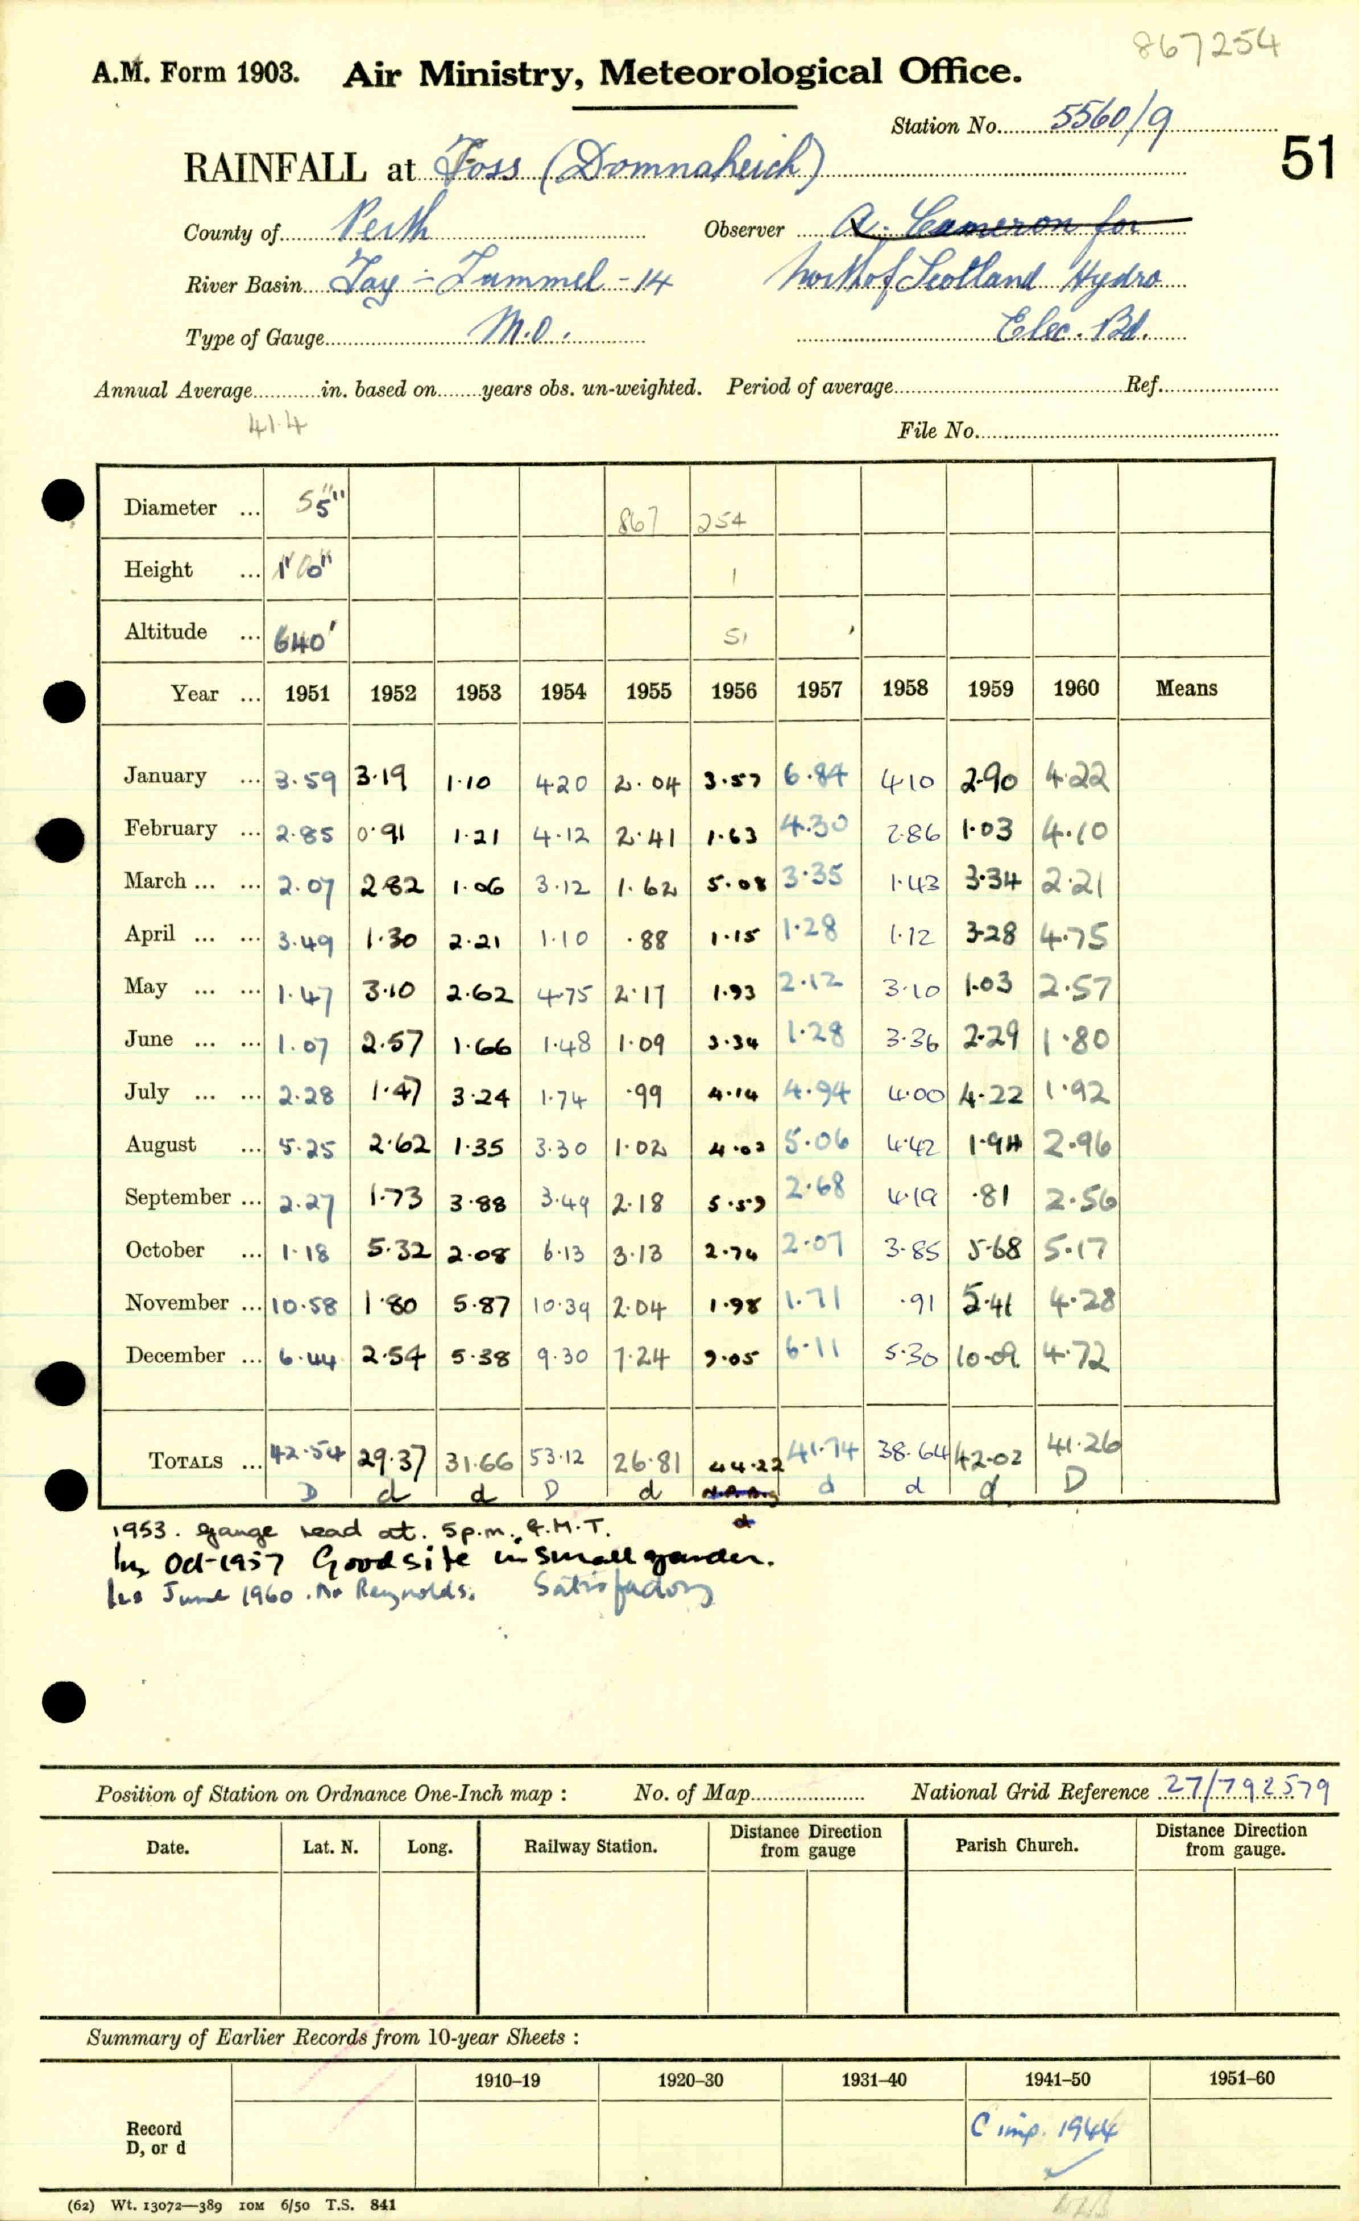 867254
A.M. Form 1903. Air Ministry, Meteorological Office.
Station No. 5560/9
51
RAINFALL at Foss (Domnaheich)
County of Perth Observer A. Cameron for
River Basin Tay - Tummel - 14 North of Scotland Hydro
Type of Gauge M.O. Elec. Bd.
Annual Average in. based on years obs. un-weighted. Period of average Ref.
41.4
File No.
Diameter ... 5" 867 254
Height ... 1' 0" 1
Altitude ... 640' 51
Year ... 1951 1952 1953 1954 1955 1956 1957 1958 1959 1960 Means
January ... 3.59 3.19 1.10 4.20 2.04 3.57 6.84 4.10 2.90 4.22
February ... 2.85 0.91 1.21 4.12 2.41 1.63 4.30 2.86 1.03 4.10
March ... ... 2.07 2.82 1.06 3.12 1.62 5.08 3.35 1.43 3.34 2.21
April ... ... 3.49 1.30 2.21 1.10 .88 1.15 1.28 1.12 3.28 4.75
May ... ... 1.47 3.10 2.62 4.75 2.17 1.93 2.12 3.10 1.03 2.57
June ... ... 1.07 2.57 1.66 1.48 1.09 3.34 1.28 3.36 2.29 1.80
July ... ... 2.28 1.47 3.24 1.74 .99 4.14 4.94 4.00 4.22 1.92
August ... 5.25 2.62 1.35 3.30 1.02 4.02 5.06 4.42 1.94 2.96
September ... 2.27 1.73 3.88 3.49 2.18 5.59 2.68 4.19 .81 2.56
October ... 1.18 5.32 2.08 6.13 3.13 2.74 2.07 3.85 5.68 5.17
November ... 10.58 1.80 5.87 10.39 2.04 1.98 1.71 .91 5.41 4.28
December ... 6.44 2.54 5.38 9.30 7.24 9.05 6.11 5.30 10.09 4.72
TOTALS ... 42.54 29.37 31.66 53.12 26.81 44.22 41.74 38.64 42.02 41.26
D d d D d d d d D
d
1953. Gauge read at. 5p.m. G.M.T.
Ins Oct 1957 Good site in small garden.
Ins June 1960. Mr Reynolds. Satisfactory
Position of Station on Ordnance One-Inch map : No. of Map National Grid Reference 27/792579
Date. Lat. N. Long. Railway Station. Distance Direction from gauge Parish Church. Distance Direction from gauge.
Summary of Earlier Records from 10-year Sheets :
1910–19 1920–30 1931–40 1941–50 1951–60
Record D, or d C imp. 1944
(62) Wt. 13072—389 10M 6/50 T.S. 841